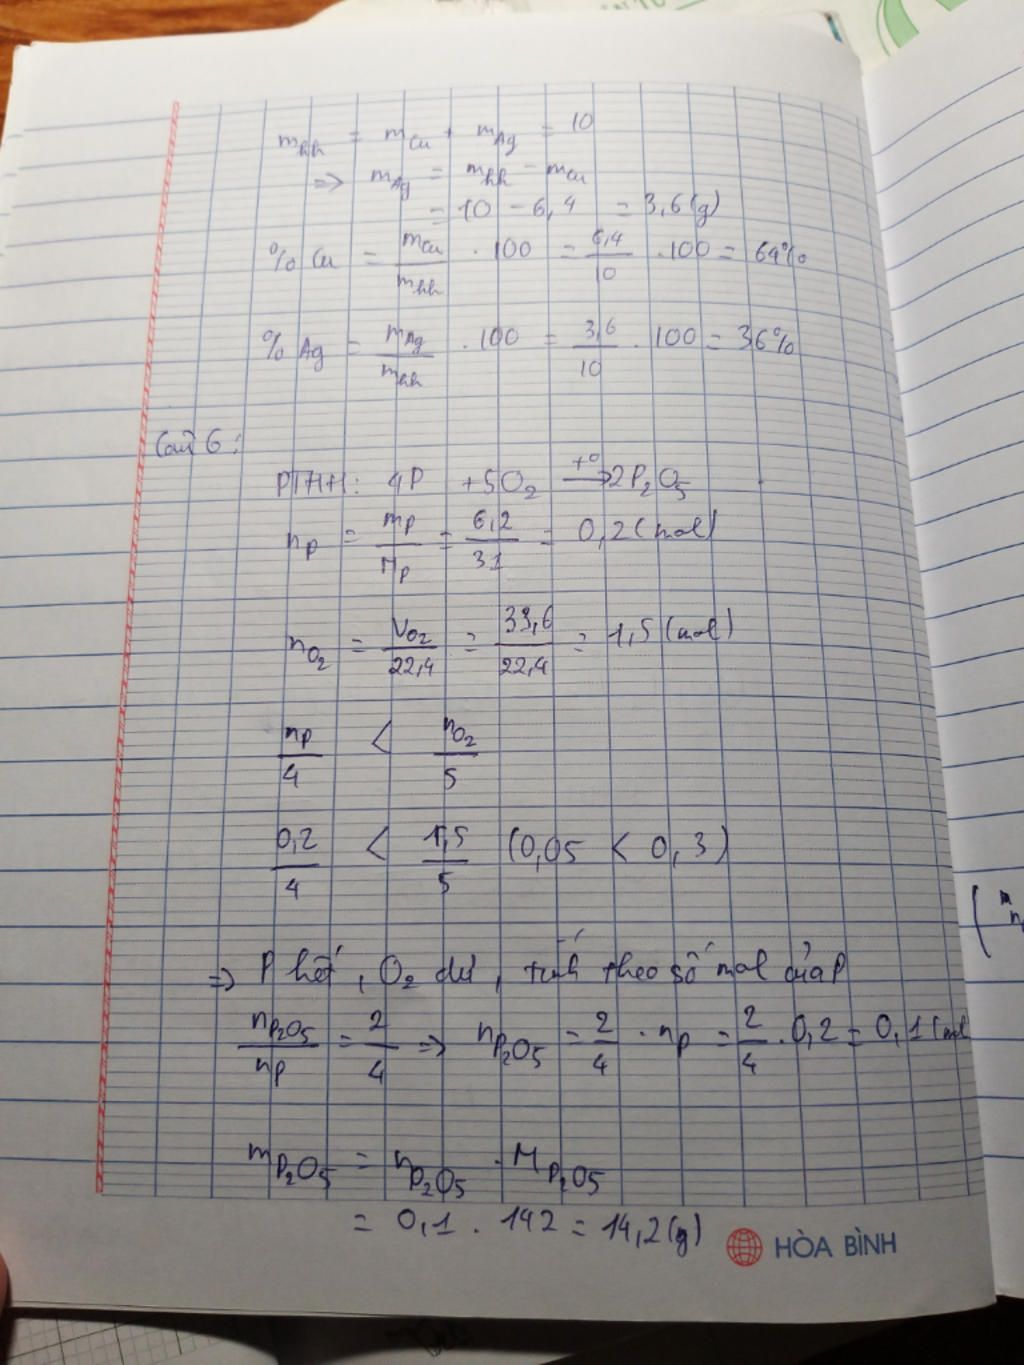 m_hh = m_Cu + m_Ag = 10
=> m_Ag = m_hh - m_Cu
= 10 - 6,4 = 3,6 (g)
% Cu = m_Cu/m_hh . 100 = 6,4/10 . 100 = 64%
% Ag = m_Ag/m_hh . 100 = 3,6/10 . 100 = 36%
Câu 6:
PTHH: 4P + 5O₂ -t°-> 2P₂O₅
n_P = m_P/M_P = 6,2/31 = 0,2 (mol)
n_O₂ = V_O₂/22,4 = 33,6/22,4 = 1,5 (mol)
n_P/4 < n_O₂/5
0,2/4 < 1,5/5 (0,05 < 0,3)
=> P hết, O₂ dư, tính theo số mol của P
n_P₂O₅/n_P = 2/4 => n_P₂O₅ = 2/4 . n_P = 2/4 . 0,2 = 0,1 (mol
m_P₂O₅ = n_P₂O₅ . M_P₂O₅
= 0,1 . 142 = 14,2 (g)
HÒA BÌNH